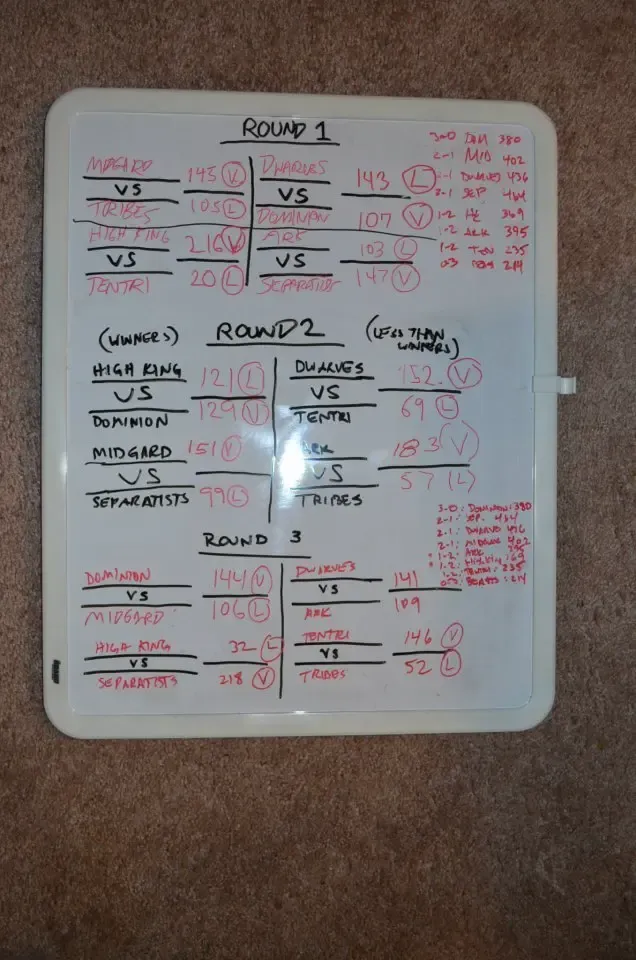 ROUND 1
MIDGARD 145 V
VS
TRIBES 105 L
DWARVES 143 L
VS
DOMINION 107 V
HIGH KING 216 V
VS
TENTRI 20 L
ARK 103 L
VS
SEPARATISTS 147 V
3-0 DOM 380
2-1 MID 402
2-1 DWARVES 436
2-1 SEP 464
1-2 HK 369
1-2 ARK 395
1-2 TEN 235
0-3 214
(WINNERS) ROUND 2 (LESS THAN WINNERS)
HIGH KING 121 L
VS
DOMINION 129 V
DWARVES 152 V
VS
TENTRI 69 L
MIDGARD 151 V
VS
SEPARATISTS 99 L
ARK 183 (V)
VS
TRIBES 57 (L)
3-0: DOMINION: 380
2-1: SEP. 464
2-1: DWARVES 436
2-1: MIDGARD 402
1-2: ARK
1-2: HIGH KING
1-2: TENTRI: 235
0-3: 214
ROUND 3
DOMINION 144 V
VS
MIDGARD 106 L
DWARVES 141
VS
ARK 109
HIGH KING 32 L
VS
SEPARATISTS 218 V
TENTRI 146 V
VS
TRIBES 52 L